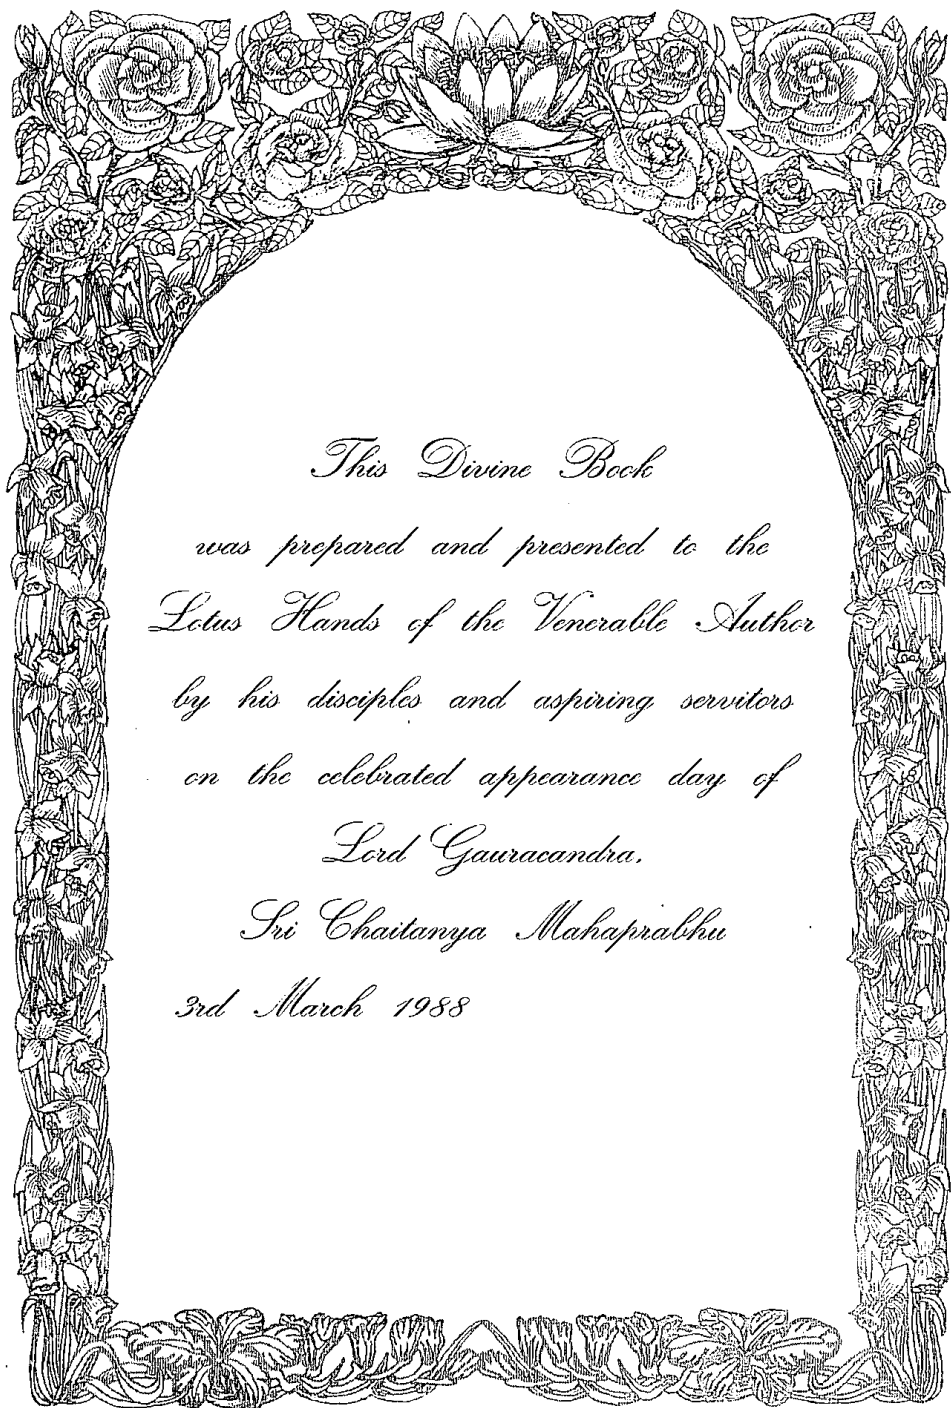 This Divine Book
was prepared and presented to the
Lotus Hands of the Venerable Author
by his disciples and aspiring servitors
on the celebrated appearance day of
Lord Gauracandra.
Sri Chaitanya Mahaprabhu
3rd March 1988